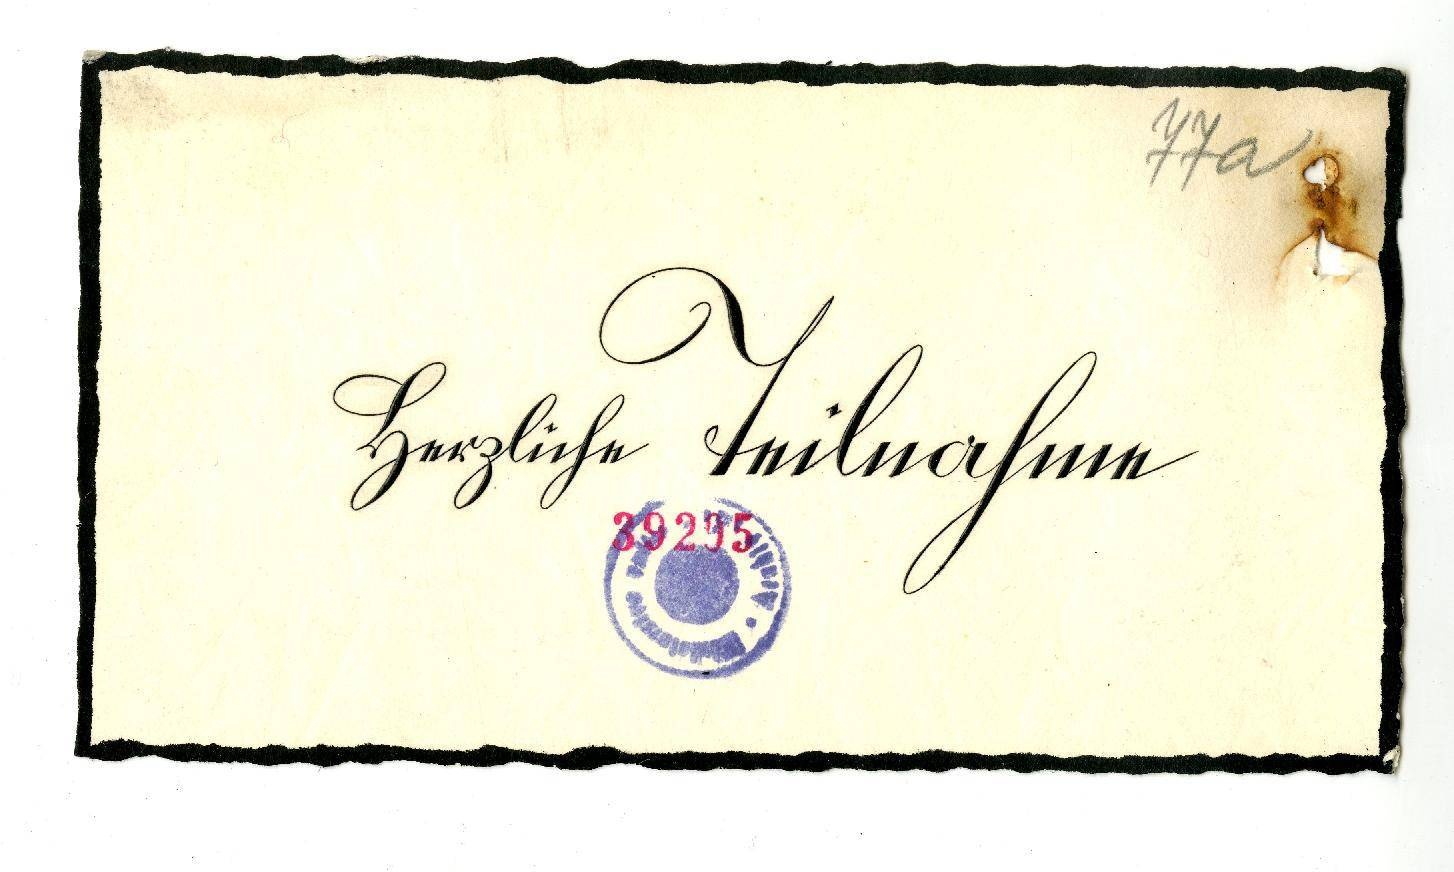 77a
Herzliche Teilnahme
39295